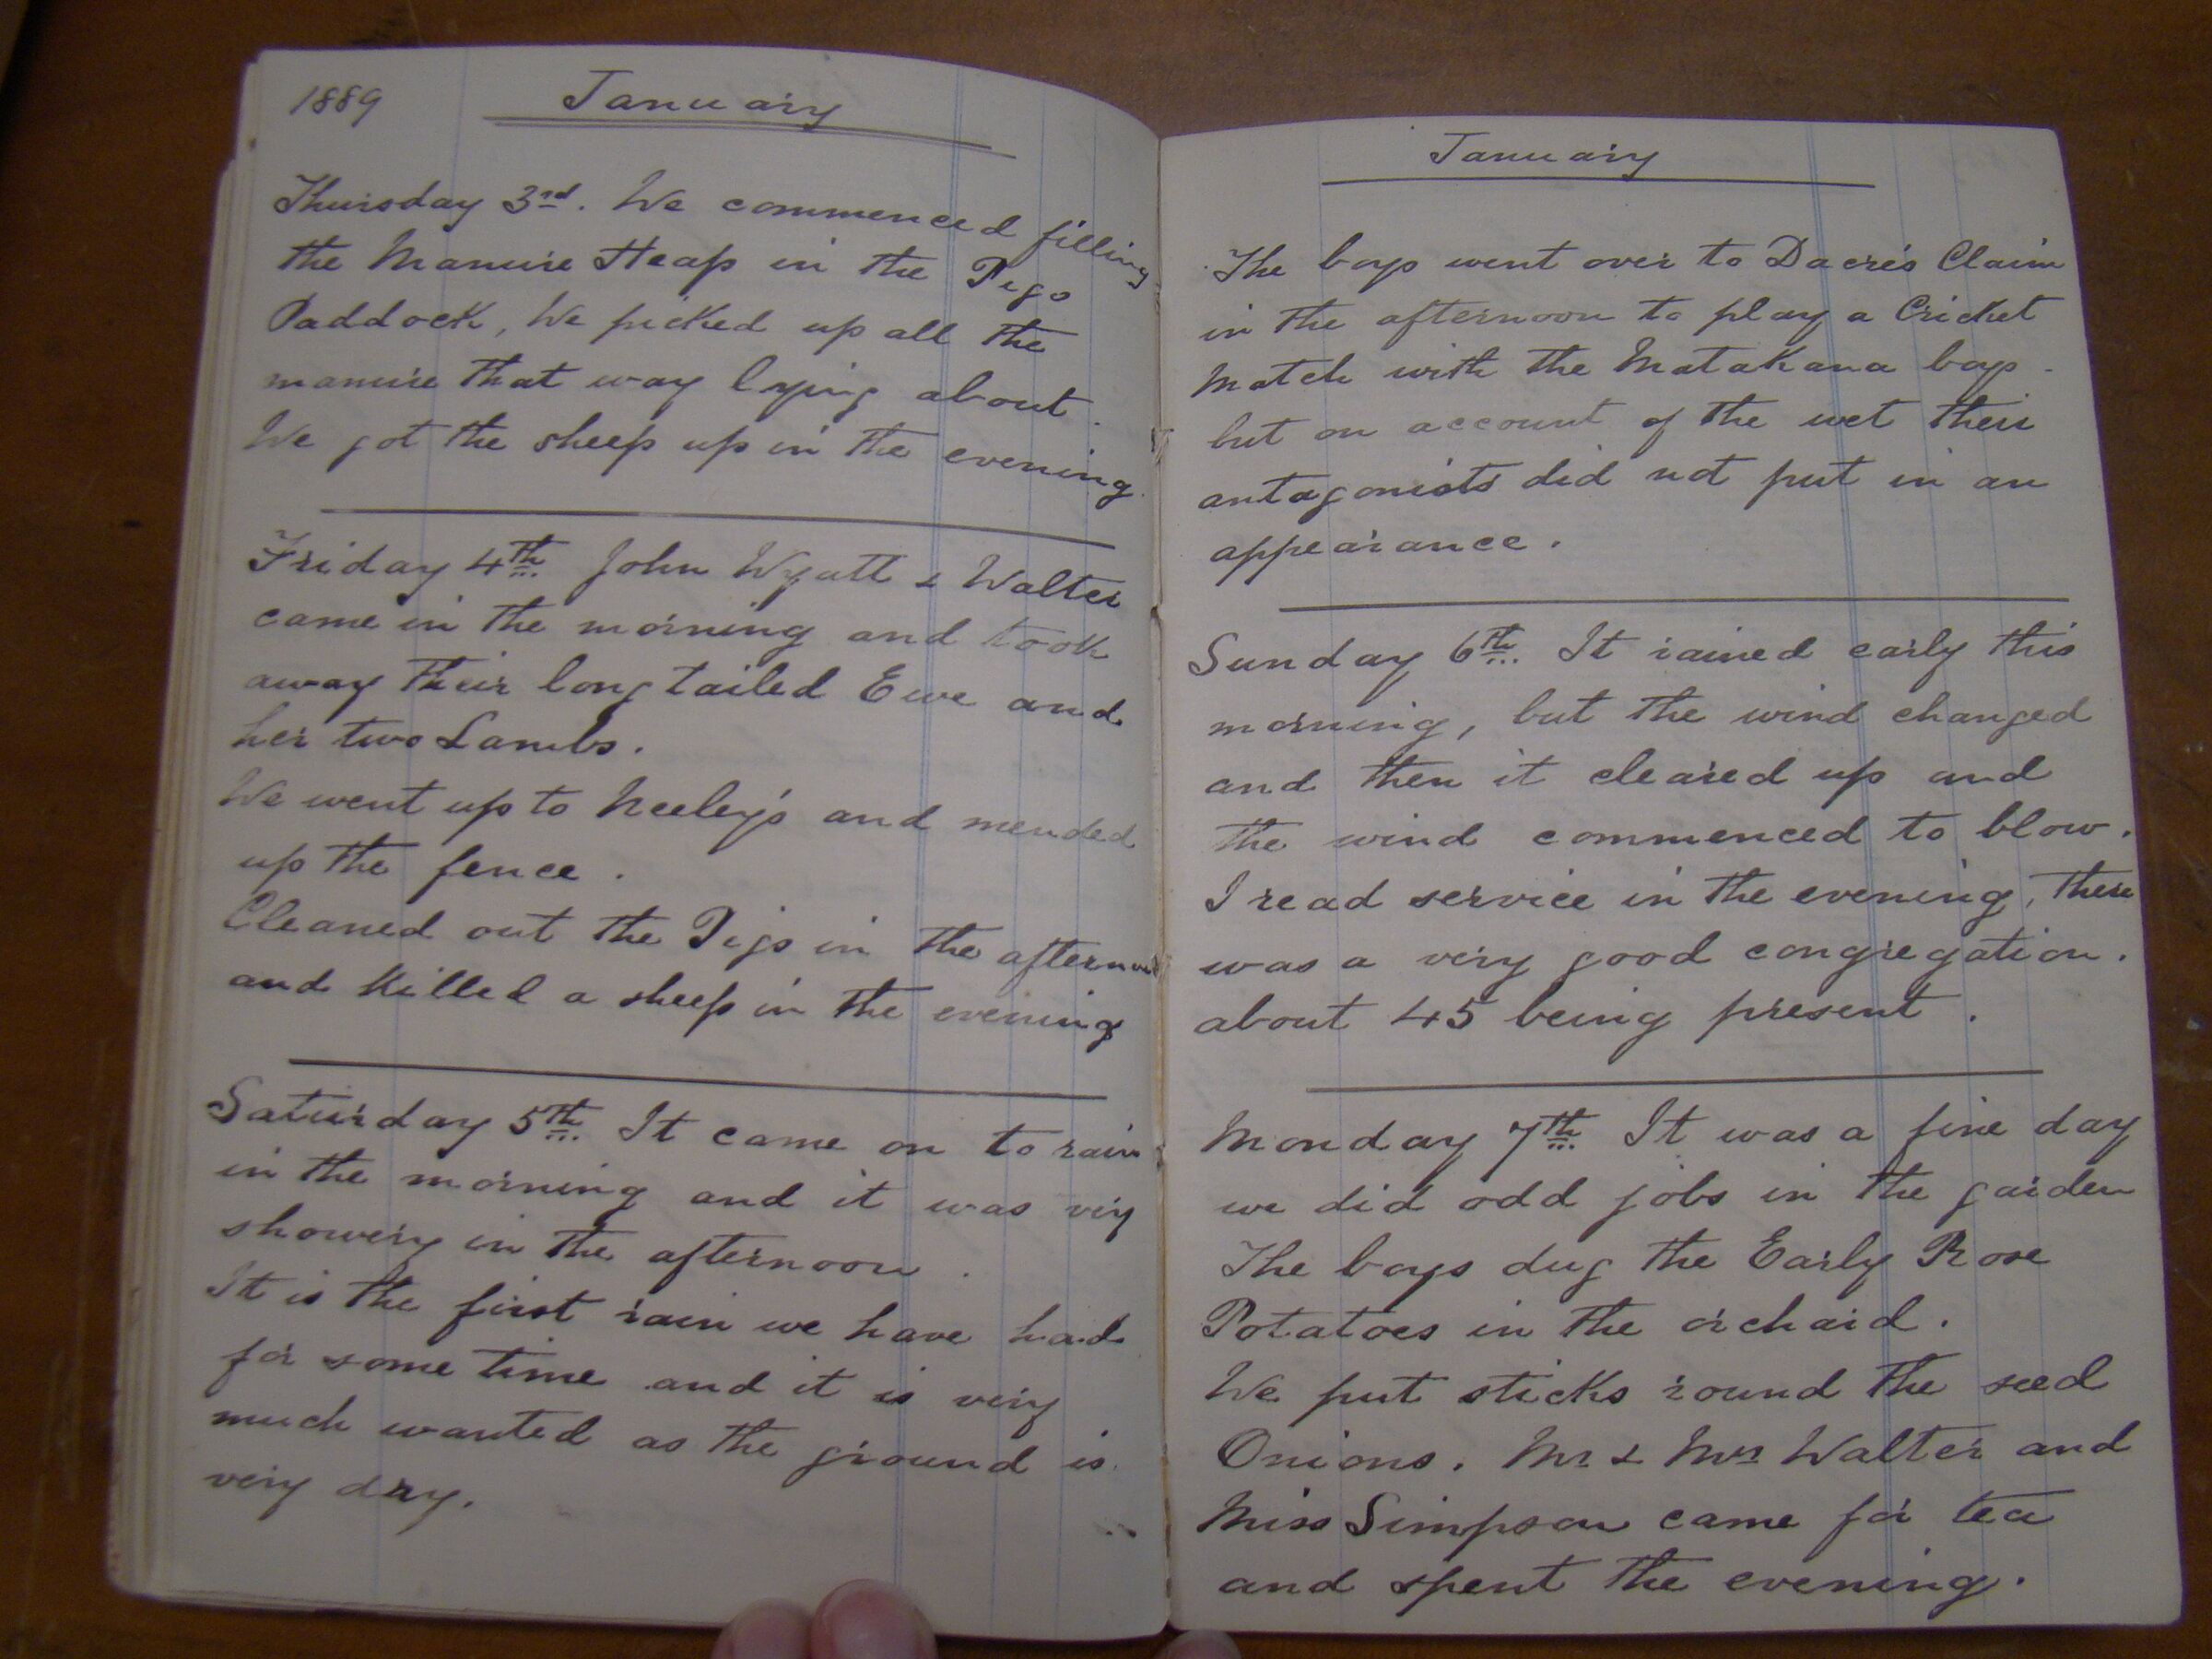 1889 January
Thursday 3rd. We commenced filling
the Manure Heap in the Pigs
Paddock, We picked up all the
manure that way lying about.
We got the sheep up in the evening.
Friday 4th John Wyatt & Walter
came in the morning and took
away their long tailed Ewe and
her two Lambs.
We went up to Neeley's and mended
up the fence.
Cleaned out the Pigs in the afternoon
and killed a sheep in the evening
Saturday 5th It came on to rain
in the morning and it was very
showery in the afternoon.
It is the first rain we have had
for some time and it is very
much wanted as the ground is
very dry.
January
The boys went over to Dacre's Claim
in the afternoon to play a Cricket
Match with the Matakana boys -
but on account of the wet their
antagonists did not put in an
appearance.
Sunday 6th It rained early this
morning, but the wind changed
and then it cleared up and
the wind commenced to blow.
I read service in the evening, there
was a very good congregation.
about 45 being present.
Monday 7th It was a fine day
we did odd jobs in the garden
The boys dug the Early Rose
Potatoes in the orchard.
We put sticks round the seed
Onions. Mr & Mrs Walter and
Miss Simpson came for tea
and spent the evening.